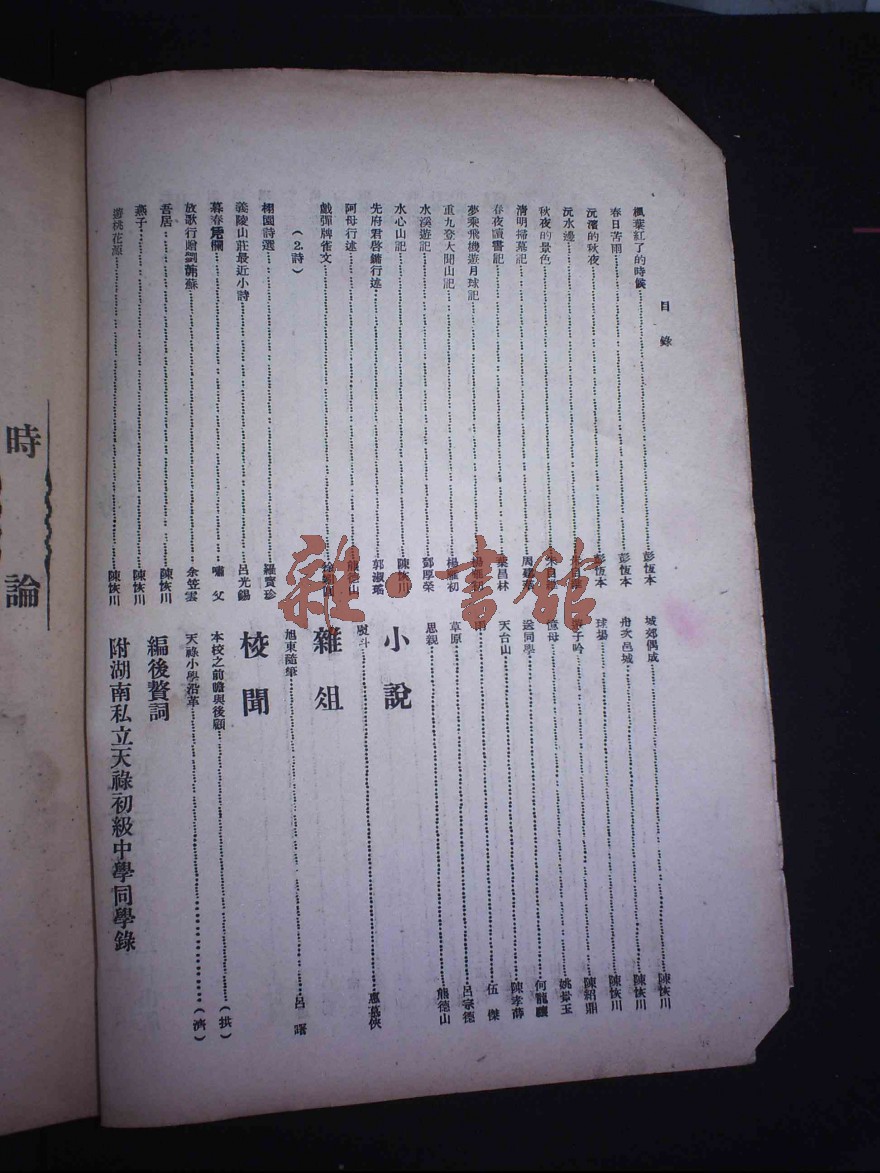 目錄
楓葉紅了的時候 彭恆本
春日苦雨 彭恆本
沅濱的秋夜 彭恆本
沅水邊
秋夜的景色
清明掃墓記 周
春夜讀書記 昌林
夢乘飛機遊月球記 初
重九登大開山記 楊雁初
水溪遊記 鄧厚榮
水心山記 陳恢川
先府君啓鏞行述 郭淑瑤
阿母行述 山
戲彈牌雀文
(2.詩)
栩園詩選 羅寶珍
義陵山莊最近小詩 呂光錫
暮春凭欄 嘯父
放歌行贈劉蘇 余笠雲
吾居 陳恢川
燕子 陳恢川
遊桃花源 陳恢川
城郊偶成 陳恢川
舟次邑城 陳恢川
球場 陳恢川
子吟 陳紹鼎
憶母 姚玉
送同學 何龍驤
天台山 陳孝薛
雨 伍傑
草原 呂宗德
思親 熊德山
小說
熨斗 惠慕俠
雜俎
旭東隨筆 呂曙
校聞
本校之前瞻與後顧 (拱)
天祿小學沿革 (濟)
編後贅詞
附湖南私立天祿初級中學同學錄
時論
雜·書館